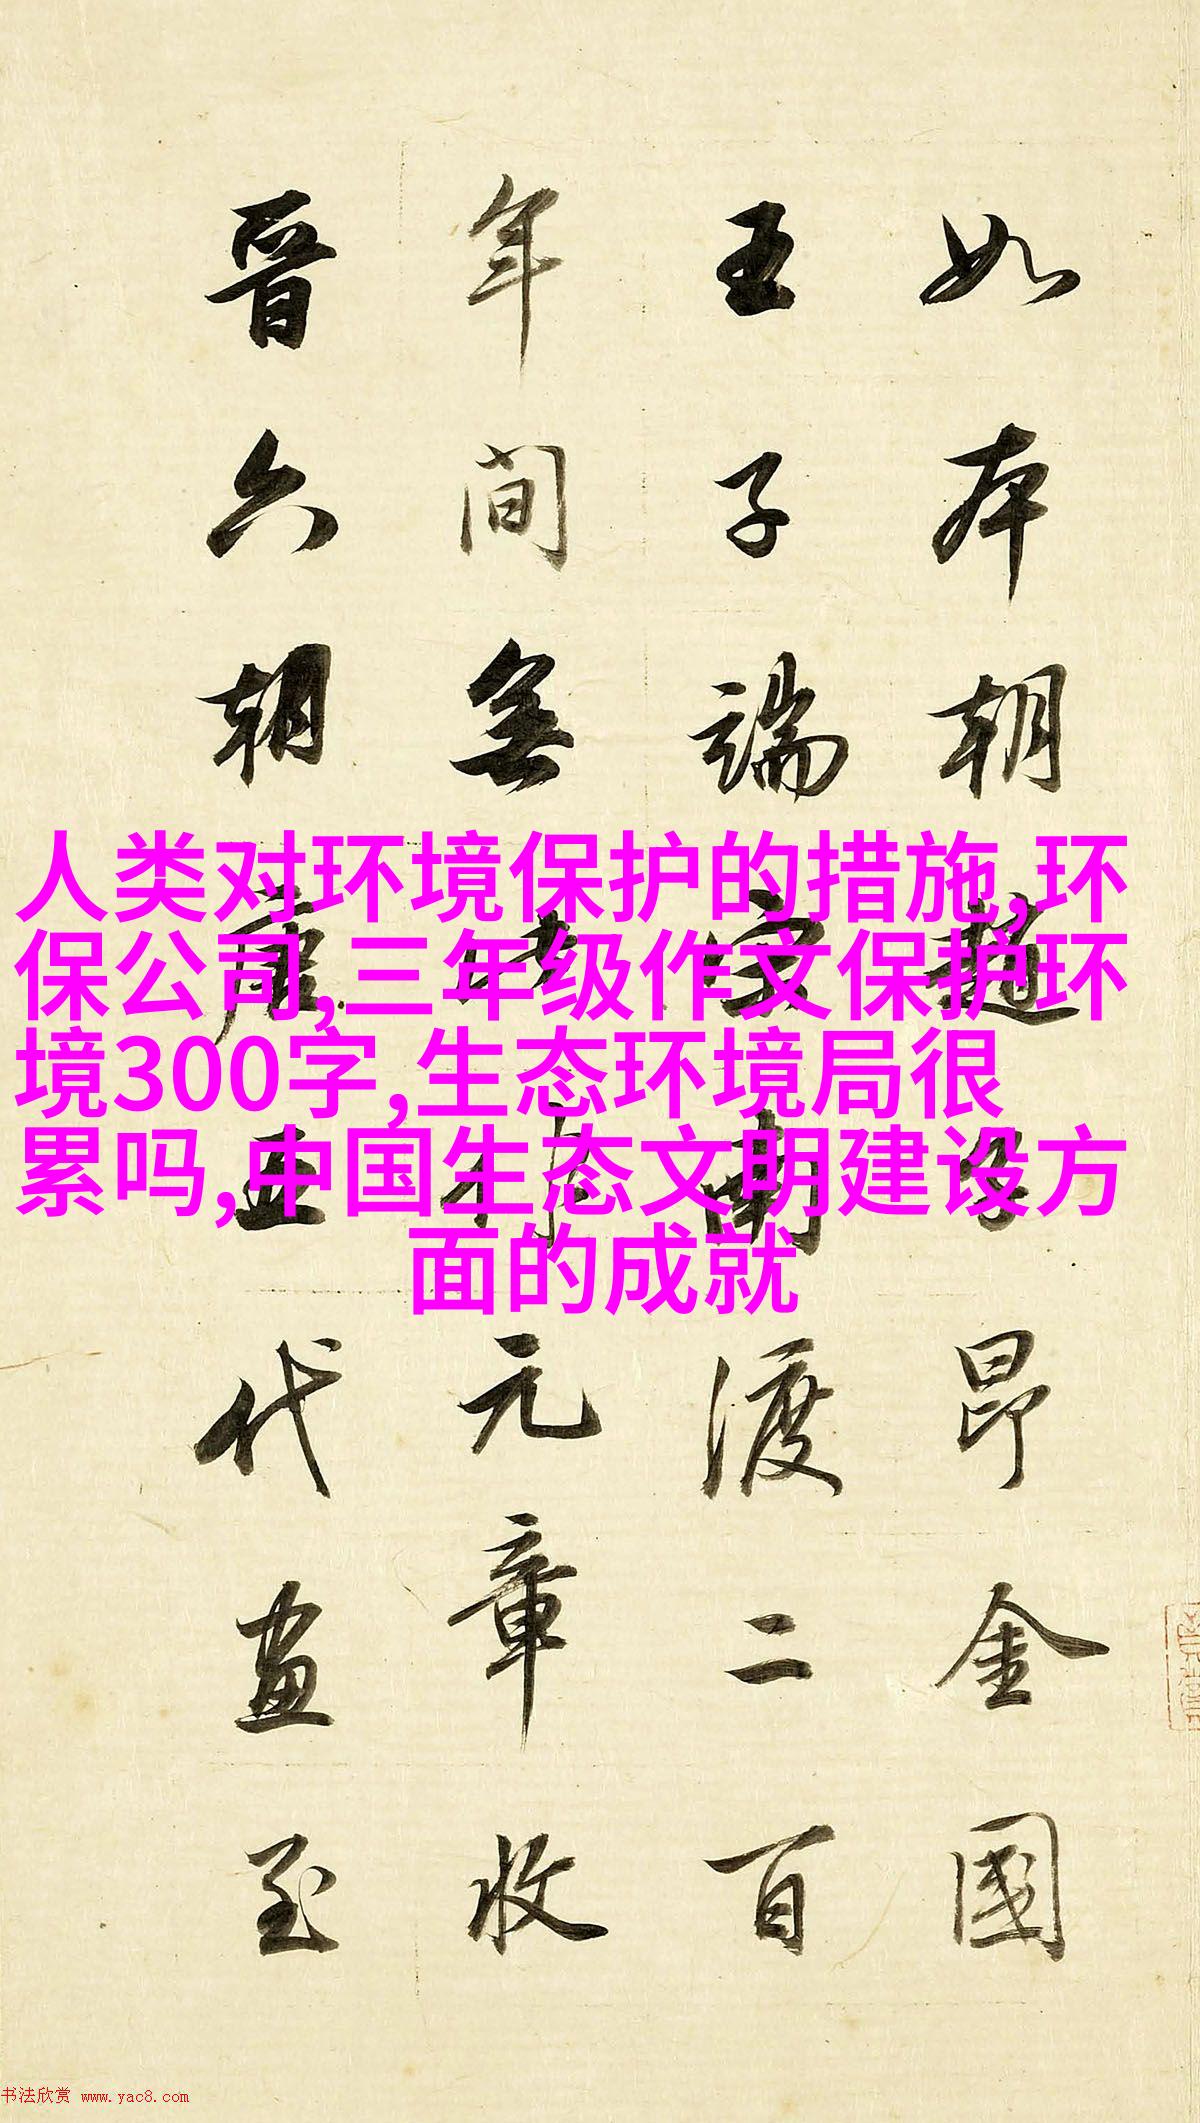 如本朝趙子昂金國
王子端宋南渡二百
年間無此作元章收
晉六朝唐五代畫至
人类对环境保护的措施,环
保公司,三年级作文保护环
境300字,生态环境局很
累吗,中国生态文明建设方
面的成就
书法欣赏 www.yac8.com